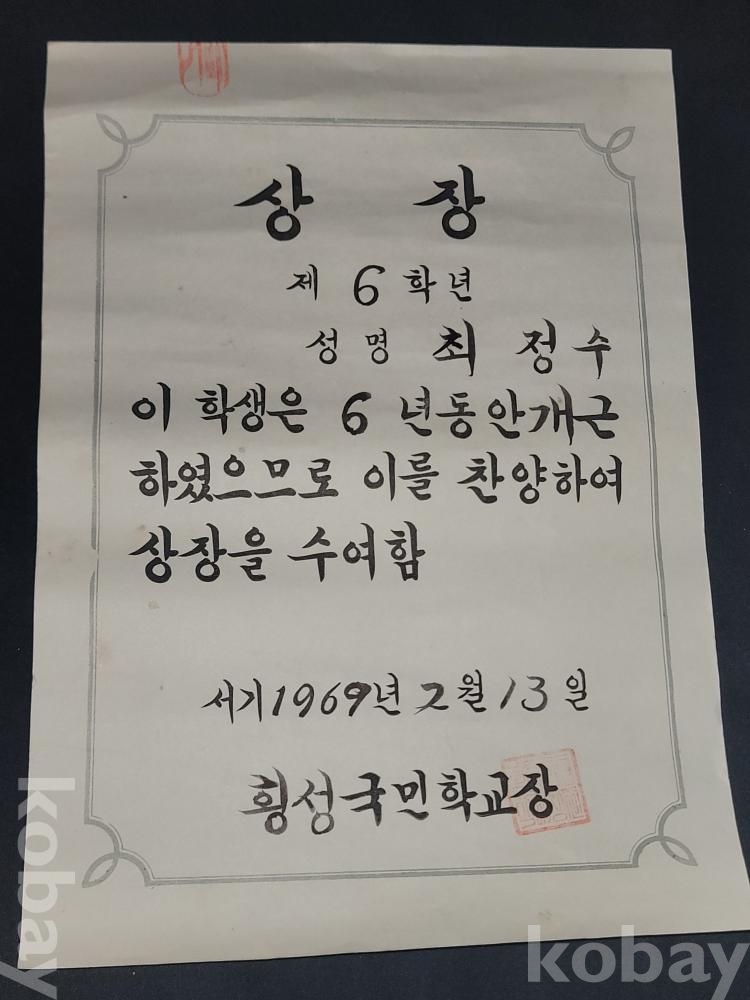 상 장
제 6 학년
성명 최 정 수
이 학생은 6 년동안개근
하였으므로 이를 찬양하여
상장을 수여함
서기1969년 2월 13일
횡성국민학교장
kobay
kobay